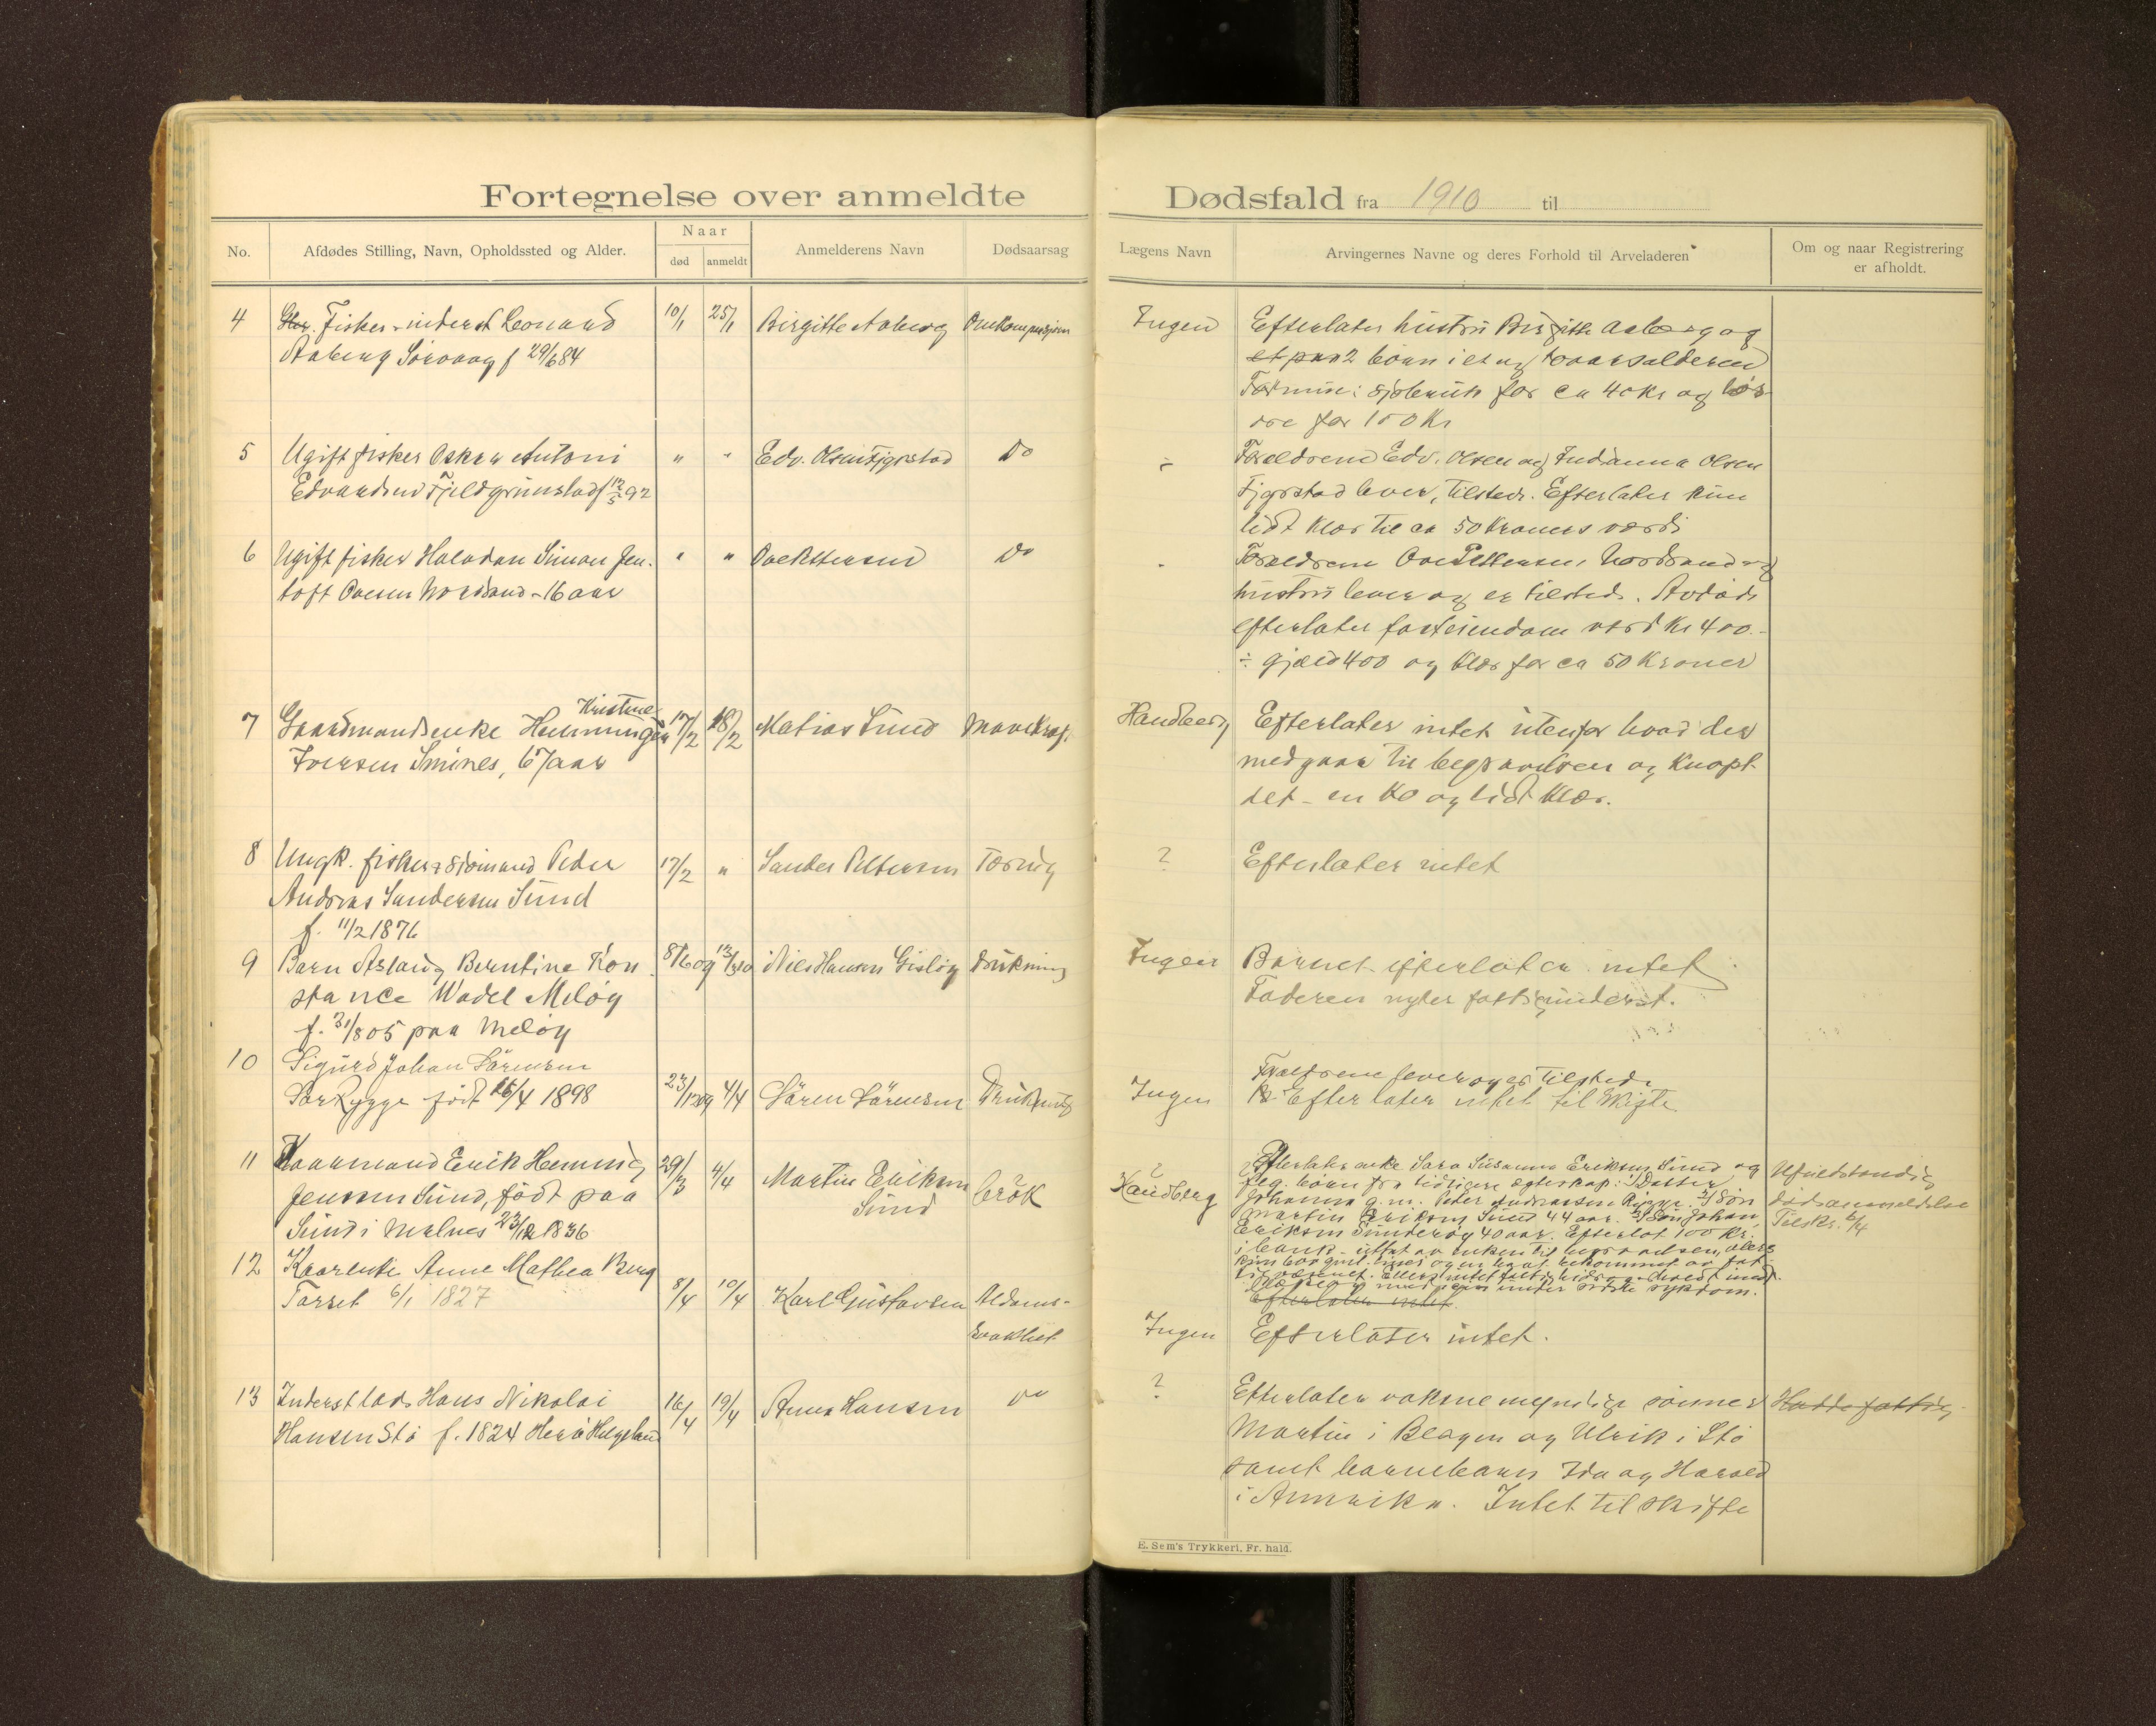 Fortegnelse over anmeldte Dødsfald fra 1910 til
No.
Afdødes Stilling, Navn, Opholdssted og Alder.
Naar
død
anmeldt
Anmelderens Navn
Dødsaarsag
Lægens Navn
Arvingernes Navne og deres Forhold til Arveladeren
Om og naar Registrering
er afholdt.
4
Fisker inderst Leonard
Aaberg Sørvaag f 29/6 84
10/1
25/1
Birgitte Aaberg
Omkom paa sjøen
Ingen
Efterlater hustru Birgitte Aaberg og
et par 2 børn i et og to aarsalderen
Formue: sjøbruk for ca 40 kr og løs
øre for 100 Kr
5
Ugift fisker Oskar Antoni
Edvardsen Fjeldgrunstad f 12/5 92
"
"
Edv. Olsen Fjgrstad
Do
Forældrene Edv. Olsen og Indianna Olsen
Fjgrstad lever, tilsteds. Efterlater kun
lidt klær til ca 50 kroners værdi
6
Ugift fisker Halvdan Simon Jen.
toft Ovesen Nordsand - 16 aar
"
"
Ove Pettersen
Do
Forældrene Ove Pettersen, Nordsand og
hustru lever og er tilsteds. Avdøde
efterlater fasteiendom værd Kr 400.-
÷ gjæld 400 og klær for ca 50 Kroner
7
Kristine
Gaardmandsenke Henninga
Iversen Smines, 67 aar
17/2
18/2
Matias Sund
Mavekræft
Handberg
Efterlater intet utenfor hvad der
medgaar til begravelsen og knapt
det - en ko og lidt klær.
8
Ungk. fisker & sjømand Peder
Andreas Sandersen Sund
f. 11/2 1876
17/2
"
Sander Pettersen
Tæring
?
Efterlater intet
9
Barn Aslaug Berntine Kon
stance Wadel Meløy
f. 31/8 05 paa Meløy
8/6 09
12/3 10
Nils Hansen Gisløy
Drukning
Ingen
Barnet efterlater intet
Faderen nyter fattigunderst.
10
Sigurd Johan Sørensen
Sørrygge født 16/4 1898
23/12 09
4/4
Søren Sørensen
Drukning
Ingen
Forældrene lever og er tilsteds
Efterlater intet til skifte
11
Kaarmand Erik Henning
Jenssen Sund, født paa
Sund i Malnes 23/12 1836
29/3
4/4
Martin Eriksen
Sund
brók
?
Handberg
Efterlater enke Sara Susanna Eriksen Sund og
flg. børn fra tidligere ægteskap: 1) Datter
Johanna g.m. Peder Andreassen Rygge. 2) Søn
Martin Eriksen Sund 44 aar. 3) Søn Johan
Eriksen Sunderøy 40 aar. Efterlot 100 Kr.
i bank - uttat av enken til begravelsen,
Efterlater intet
Ufuldstændig
dødsanmeldelse
Tilskr. 6/4
12
Kaarenke Anne Mathea Berg
Tarset 6/1 1827
8/4
10/4
Karl Gustavsen
Alderds-
svakhet
Ingen
Efterlater intet.
13
Inderst Lods Hans Nikolai
Hansen Stø f. 1824 Herø Helgeland
16/4
19/4
Anna Hansen
Do
?
Efterlater voksne myndige sønner
Martin i Skogen og Ulrik i Stø
samt barnebarn Ida og Harald
i Amerika. Intet til skifte
Hadde fattig
E. Sem's Trykkeri, Fr. hald.